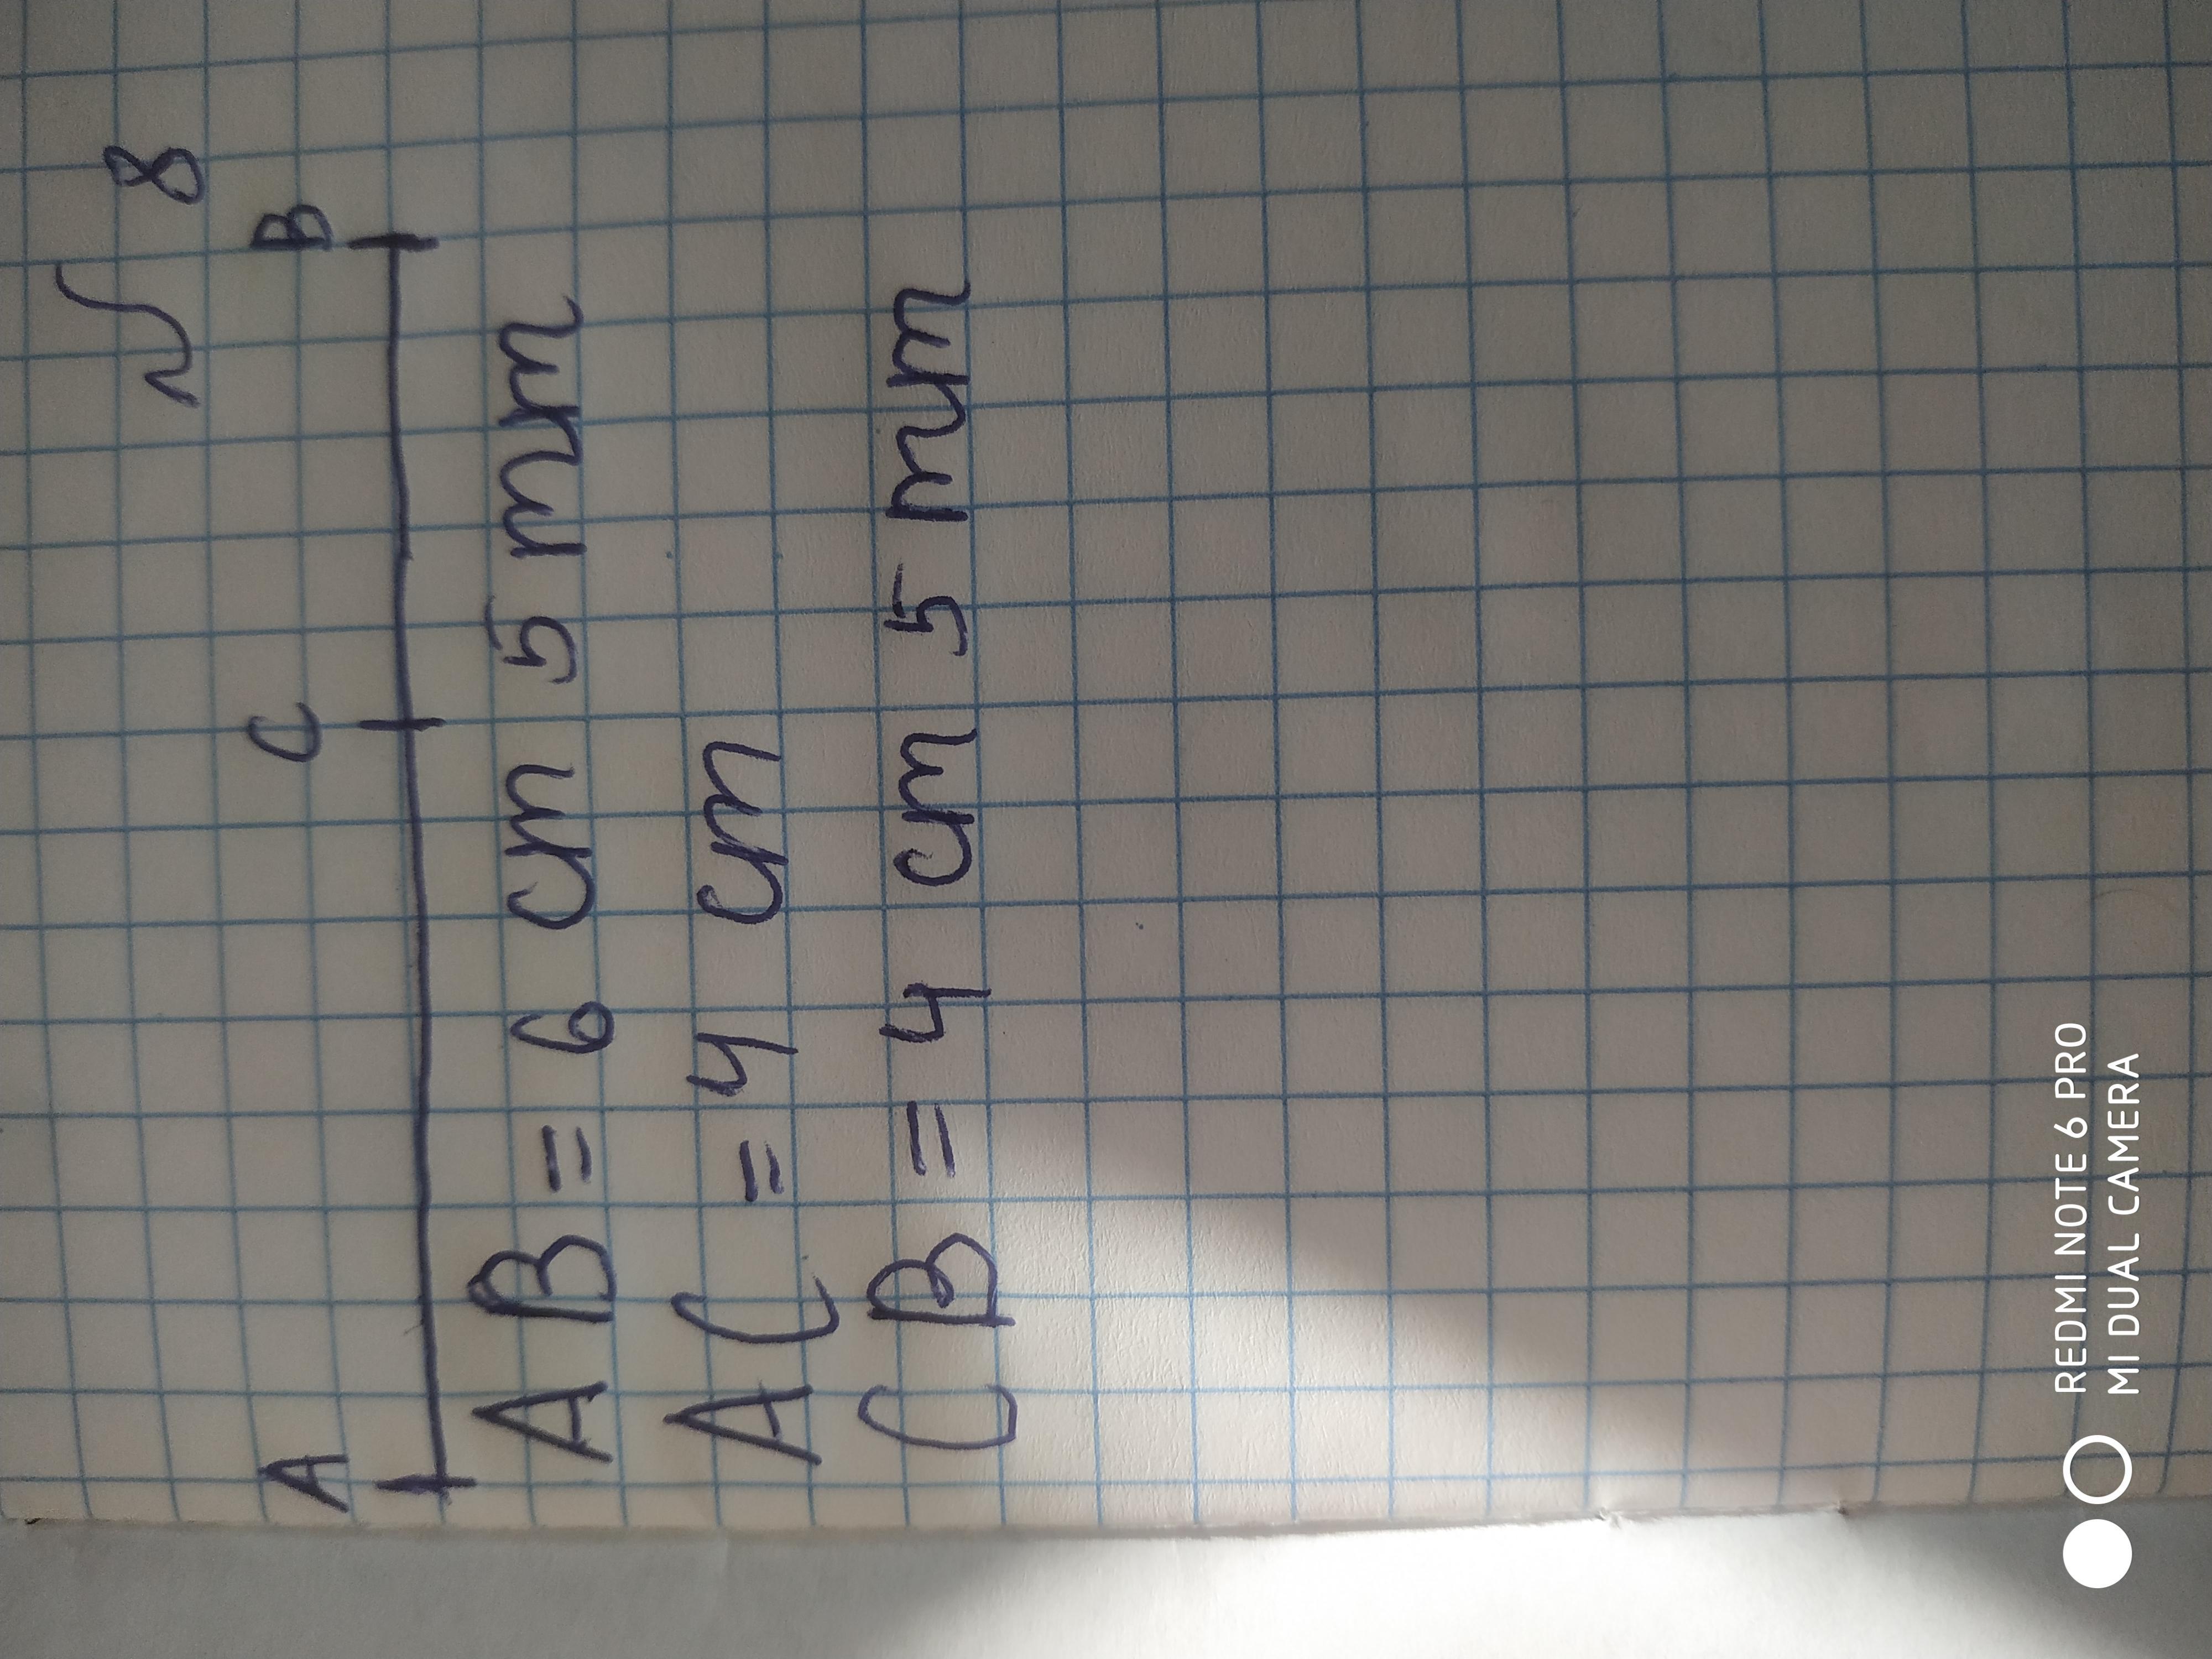 № 8
A C B
AB = 6 cm 5 mm
AC = 4 cm
CB = 4 cm 5 mm
REDMI NOTE 6 PRO
MI DUAL CAMERA